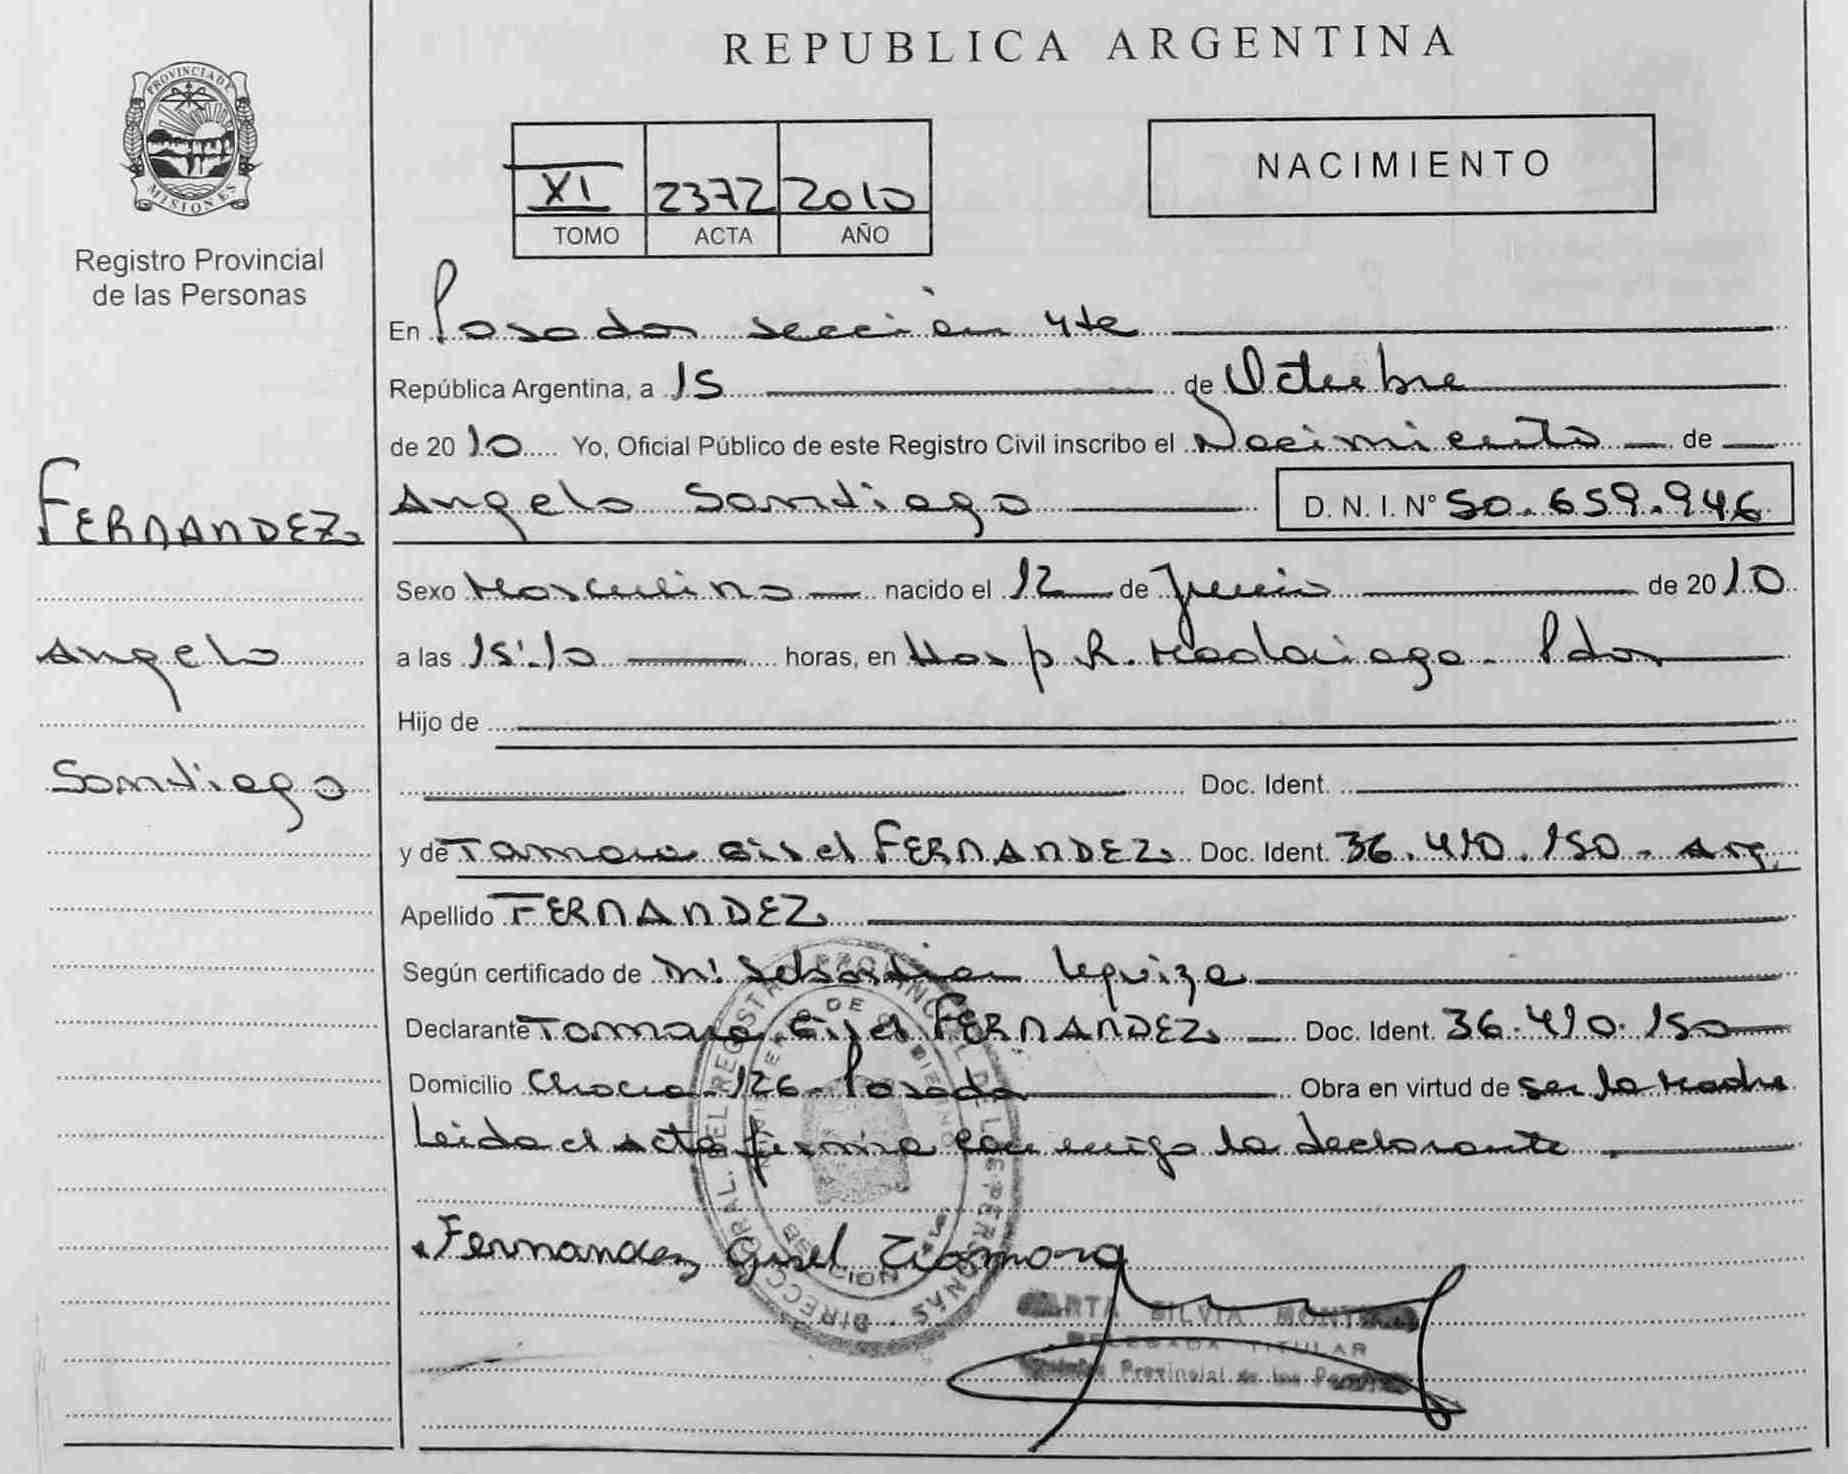 REPUBLICA ARGENTINA
PROVINCIA DE MISIONES
Registro Provincial
de las Personas
XI 2372 2010
TOMO ACTA AÑO
NACIMIENTO
En Posadas sección 4ta
República Argentina, a 15 de Octubre
de 2010 Yo, Oficial Público de este Registro Civil inscribo el Nacimiento de
Angelo Santiago D. N. I. N° 50.659.946
FERNANDEZ
Angelo
Santiago
Sexo Masculino nacido el 12 de Junio de 2010
a las 15:10 horas, en Hosp R. Madariaga - Pdas
Hijo de
Doc. Ident.
y de Tamara Gisel FERNANDEZ Doc. Ident. 36.410.150 - Arg.
Apellido FERNANDEZ
Según certificado de Sebastian
Declarante Tamara Gisel FERNANDEZ Doc. Ident. 36.410.150
Domicilio 126 - Posadas Obra en virtud de ser la Madre
Leida el acta firma conmigo la declarante
Fernandez Gisel Tamara
SILVIA
DELEGADA TITULAR
Provincial de las Personas